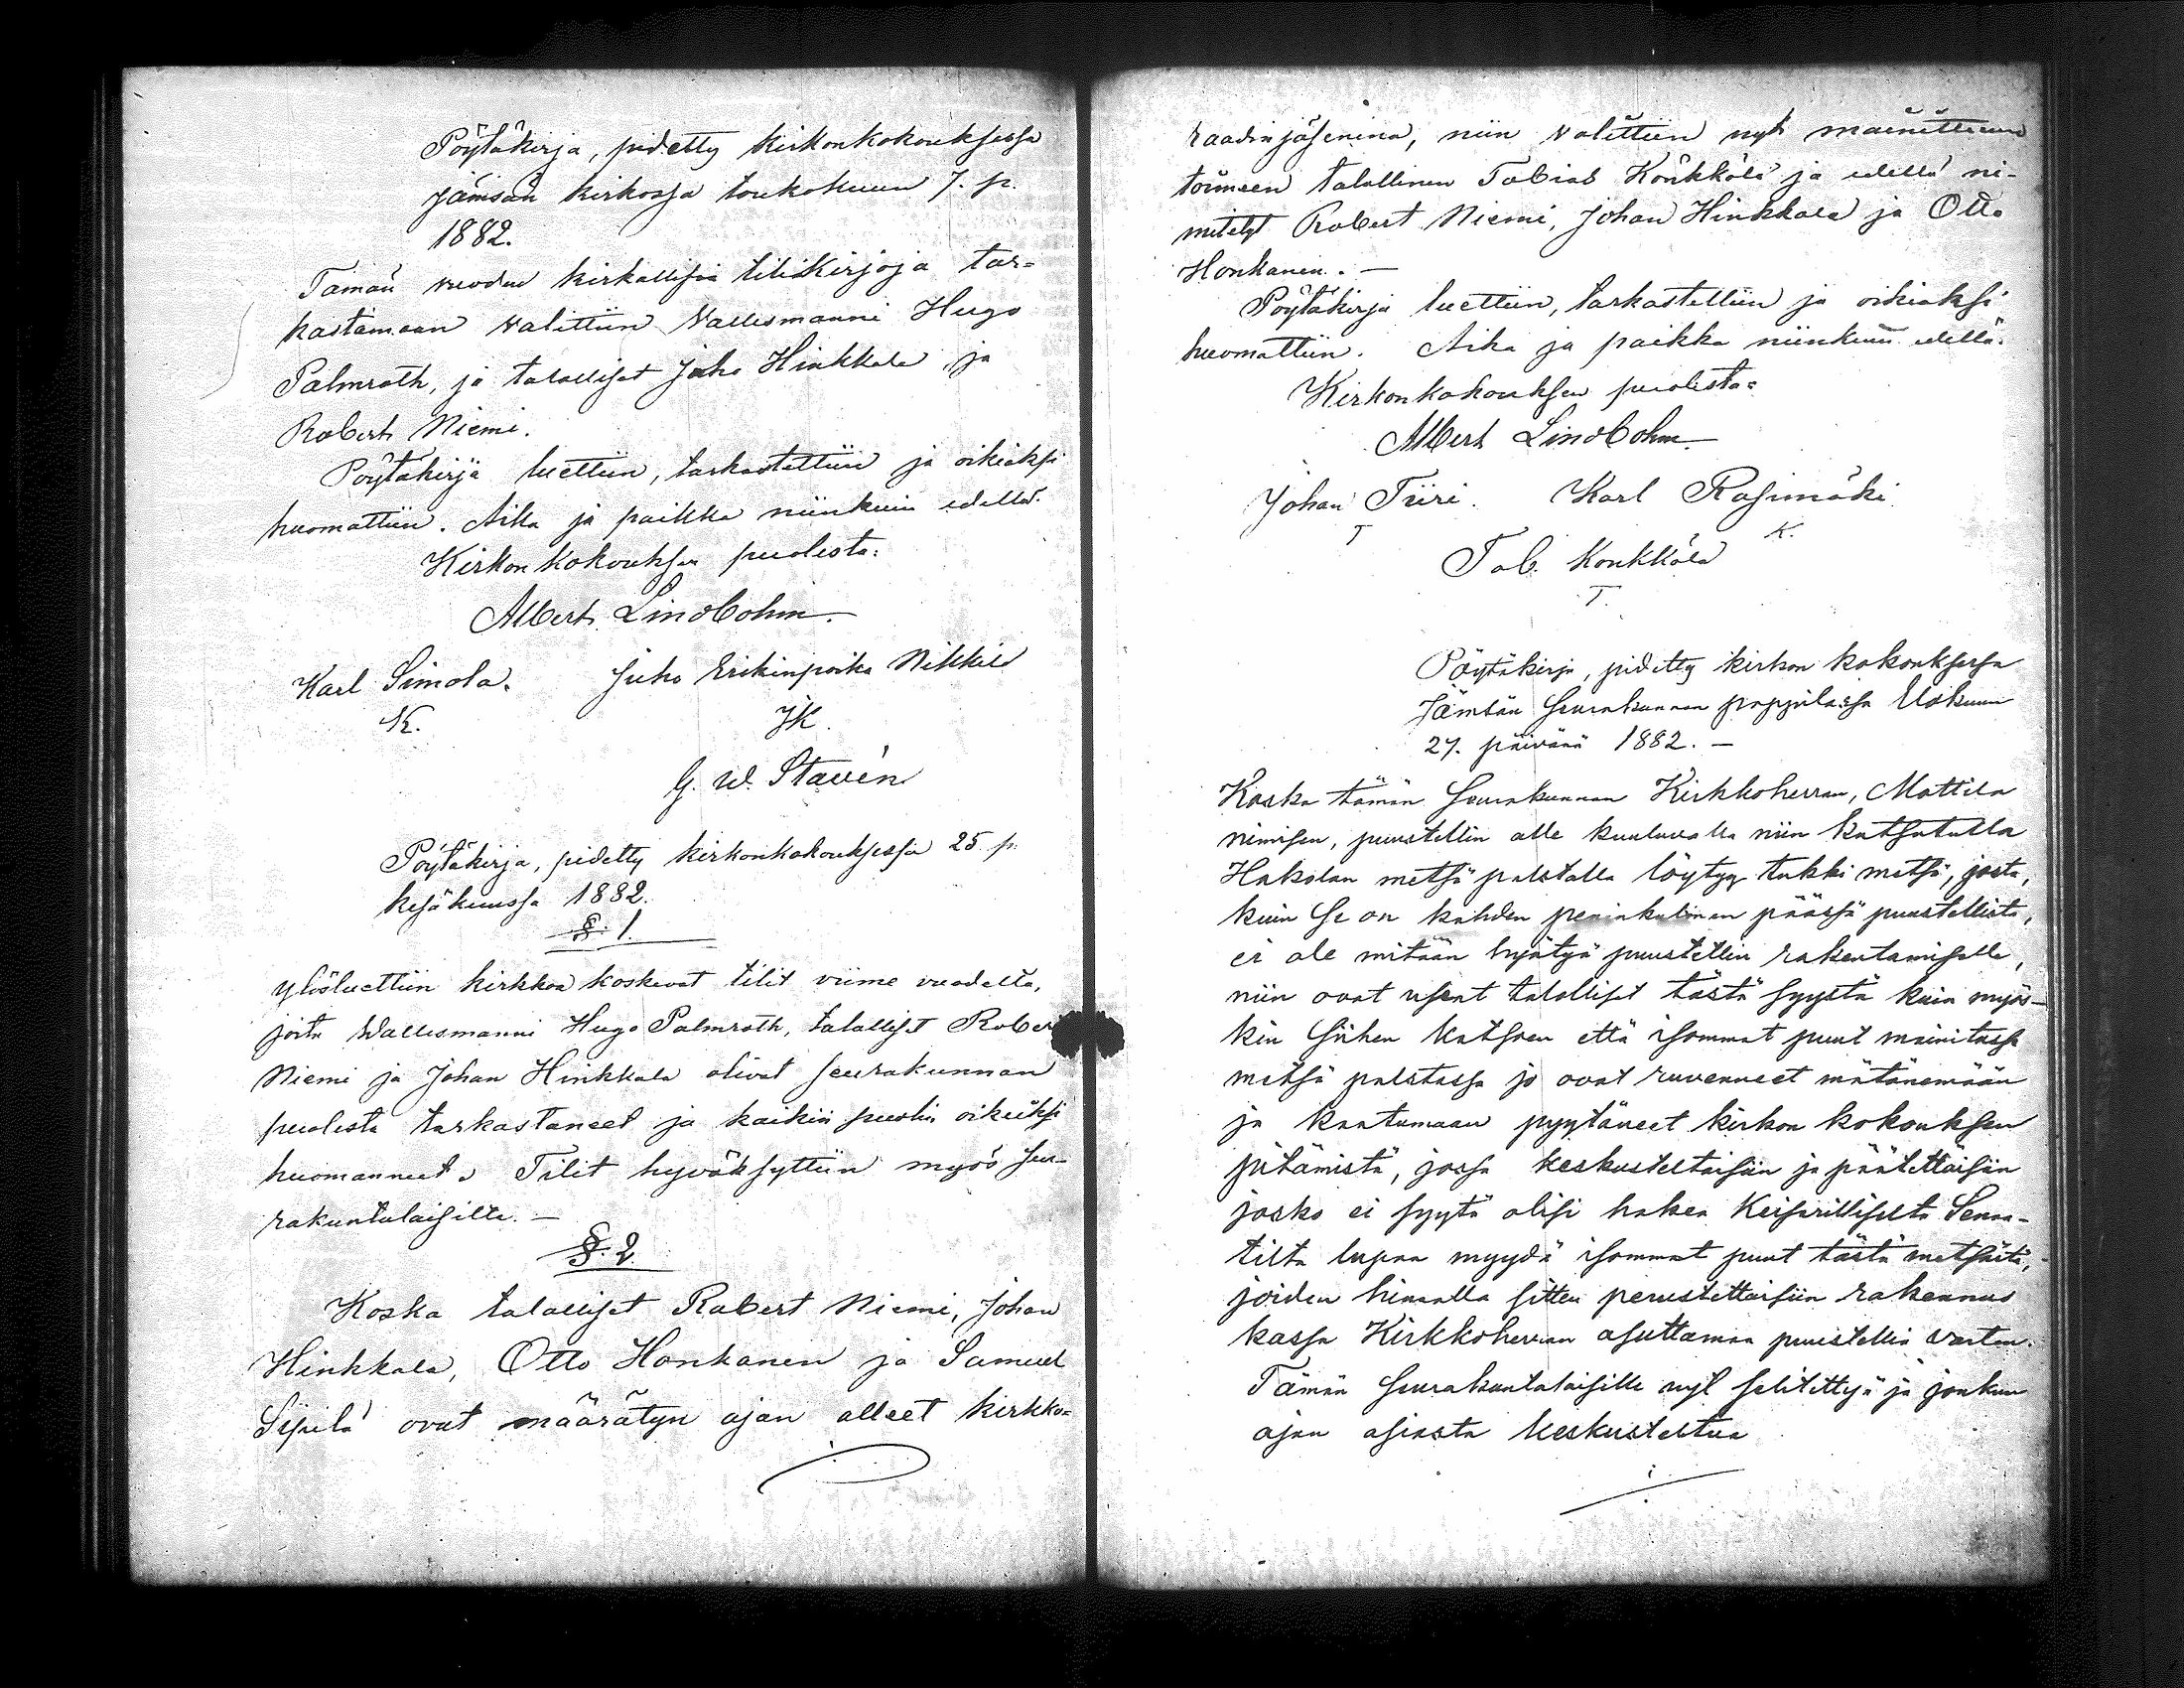 Pöytäkirja, pidetty kirkonkokouksessa
Jämsän kirkossa toukokuun 7. p.
1882.
Tämän vuoden kirkollisia tilikirjoja tar=
kastamaan valittiin Vallesmanni Hugo
Palmroth, ja talolliset Juho Hinkkala ja
Robert Niemi.
Pöytäkirja luettiin, tarkastettiin ja oikiaksi
huomattiin. Aika ja paikka niinkuin edellä.
Kirkonkokouksen puolesta:
Albert Lindbohm.
Karl Simola. Juho Erikinpoika Nikkilä
K. JK.
G. W. Stavén
Pöytäkirja, pidetty kirkonkokouksessa 25 p.
kesäkuussa 1882.
§. 1.
Ylösluettiin kirkkoa koskevat tilit viime vuodelta,
joita Wallesmanni Hugo Palmroth, talolliset Robert
Niemi ja Johan Hinkkala olivat seurakunnan
puolesta tarkastaneet ja kaikin puolin oikeiksi
huomanneet. Tilit hyväksyttiin myös seu-
rakuntalaisilta. —
§. 2.
Koska talolliset Robert Niemi, Johan
Hinkkala, Otto Honkanen ja Samuel
Sipilä ovat määrätyn ajan olleet kirkko=
raadin jäseninä, niin valittiin nyt mainittuun
toimeen talollinen Tobias Könkkölä ja edellä ni-
mitetyt Robert Niemi, Johan Hinkkala ja Otto
Honkanen. —
Pöytäkirja luettiin, tarkastettiin ja oikiaksi
huomattiin. Aika ja paikka niinkuin edellä.
Kirkonkokouksen puolesta:
Albert Lindbohm
Johan Tiiri. Karl Rasimäki
T K.
Tob. Könkkölä
T.
Pöytäkirja, pidetty kirkon kokouksessa
Jämsän seurakunnan pappilassa Elokuun
27. päivänä 1882. —
Koska tämän seurakunnan Kirkkoherran, Mattila
nimisen, puustellin alle kuuluvalla niin kutsutulla
Hakolan metsä palstalla löytyy tukki metsä, josta,
kuin se on kahden peninkulman päässä puustellista,
ei ole mitään hyötyä puustellin rakentamiselle,
niin ovat useat talolliset tästä syystä kuin myös-
kin siihen katsoen että isommat puut mainitussa
metsä palstassa jo ovat ruvenneet mätänemään
ja kaatumaan pyytäneet kirkon kokouksen
pitämistä, jossa keskusteltaisiin ja päätettäisiin
josko ei syytä olisi hakea Keisarilliselta Senaa-
tilta lupaa myydä isommat puut tästä metsästä,
joiden hinnalla sitten perustettaisiin rakennus
kassa Kirkkoherran asuttamaa puustellia varten.
Tämän seurakuntalaisille nyt selitettyä ja jonkun
ajan asiasta keskusteltua